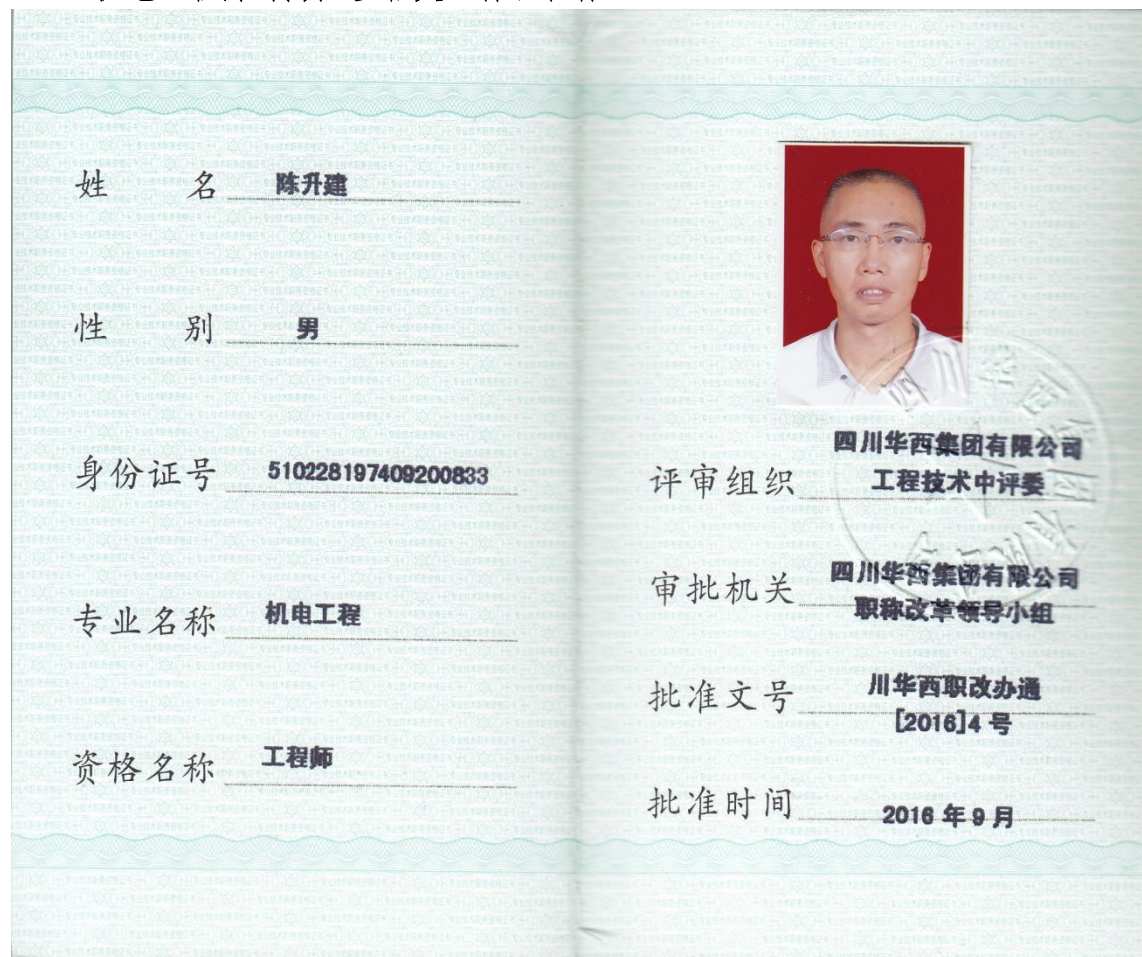 姓名 陈升建
性别 男
身份证号 510228197409200833
专业名称 机电工程
资格名称 工程师
四川华西集团有限公司
评审组织 工程技术中评委
四川华西集团有限公司
审批机关 职称改革领导小组
批准文号 川华西职改办通
[2016]4 号
批准时间 2016 年 9 月